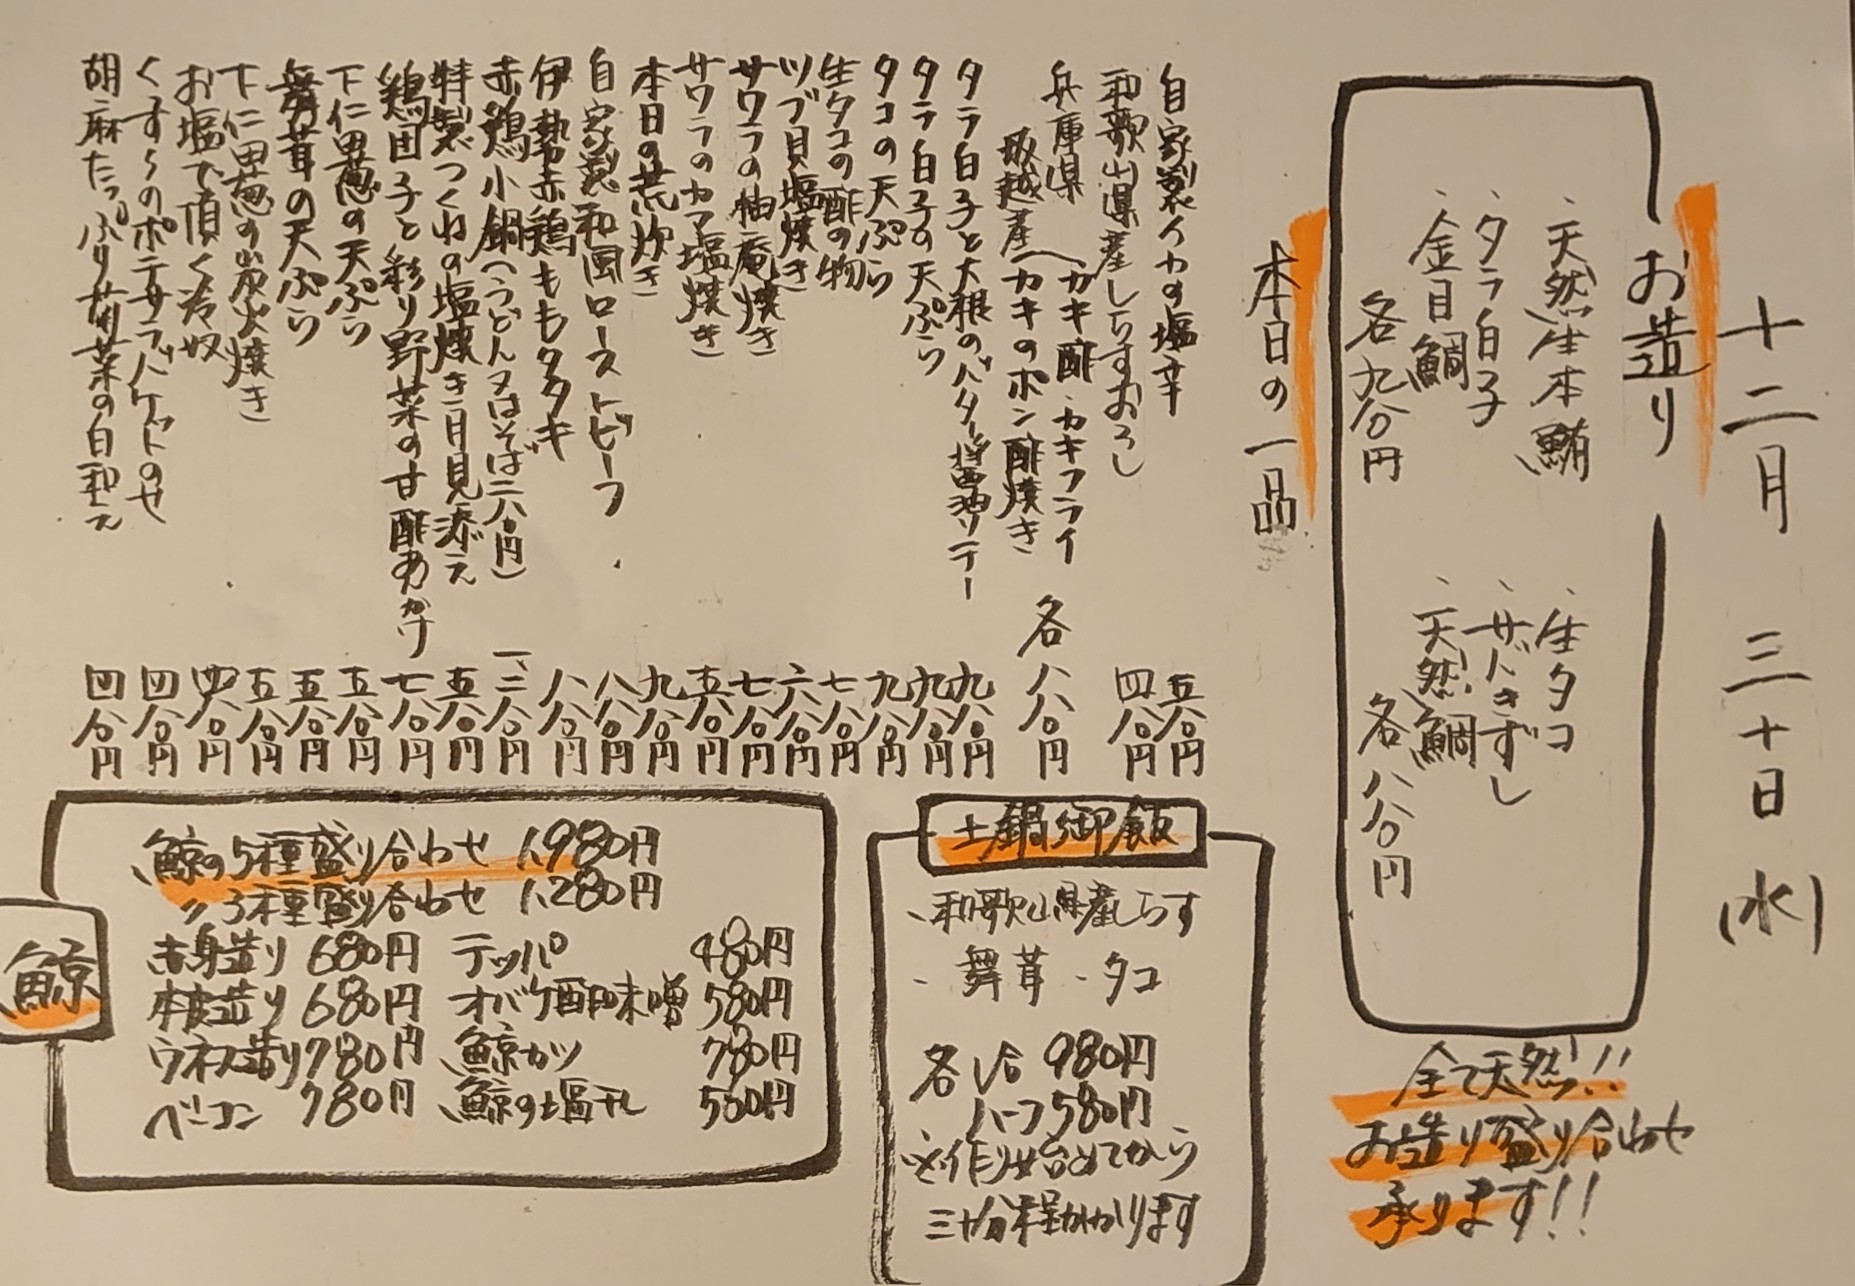 十二月 三十日 (水)
お造り
・天然生本鮪
・タラ白子
・金目鯛
各九八〇円
・生タコ
・サバきずし
・天然鯛
各八八〇円
全て天然!!
お造り盛り合わせ
承ります!!
本日の一品
自家製イカの塩辛 五八〇円
和歌山県産しらすおろし 四八〇円
兵庫県坂越産(カキ酢・カキフライ
(カキのポン酢焼き 各八八〇円
タラ白子と大根のバター醤油ソテー 九八〇円
タラ白子の天ぷら 九八〇円
タコの天ぷら 九八〇円
生タコの酢の物 七八〇円
ツブ貝塩焼き 六八〇円
サワラの柚庵焼き 七八〇円
サワラのカマ塩焼き 五八〇円
本日の荒炊き 九八〇円
自家製和風ローストビーフ 八八〇円
伊勢赤鶏ももタタキ 八八〇円
赤鶏小鍋(うどん又はそば二八〇円) 一、二八〇円
特製つくねの塩焼き月見添え 五八〇円
鶏団子と彩り野菜の甘酢あんかけ 七八〇円
下仁田葱の天ぷら 五八〇円
舞茸の天ぷら 五八〇円
下仁田葱の炭火焼き 五八〇円
お塩で頂く冷奴 四八〇円
くずしのポテサラバケットのせ 四八〇円
胡麻たっぷり菊菜の白和え 四八〇円
土鍋御飯
・和歌山県産しらす
・舞茸 ・タコ
各1合 980円
ハーフ 580円
※作り始めてから
三十分程かかります
鯨
鯨の5種盛り合わせ 1,980円
〃3種盛り合わせ 1,280円
赤身造り 680円 テッパ 480円
本皮造り 680円 オバケ酢味噌 580円
ウネス造り 780円 鯨カツ 780円
ベーコン 780円 鯨の塩干し 500円